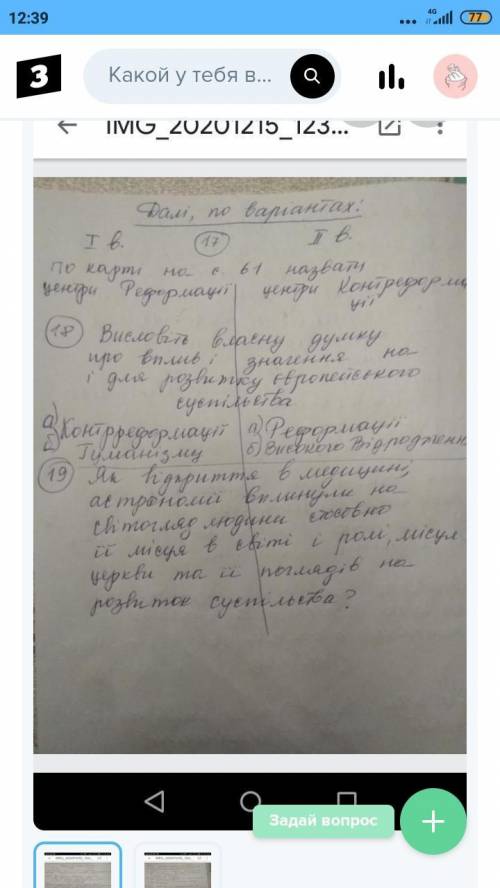 12:39
4G
77
З
Какой у тебя в...
IMG_20201215_123...
Далі, по варіантах:
I в. 17 II в.
По карті на с. 61 назвати
центри Реформації центри Контреформа
ції
18 Висловіть власну думку
про вплив і значення на
і для розвитку європейського
суспільства
а) Контрреформації а) Реформації
б) Гуманізму б) Високого Відродженн
19 Як відкриття в медицині,
астрономії вплинули на
світогляд людини стосовно
її місця в світі і ролі, місця
церкви та її поглядів на
розвиток суспільства?
Задай вопрос